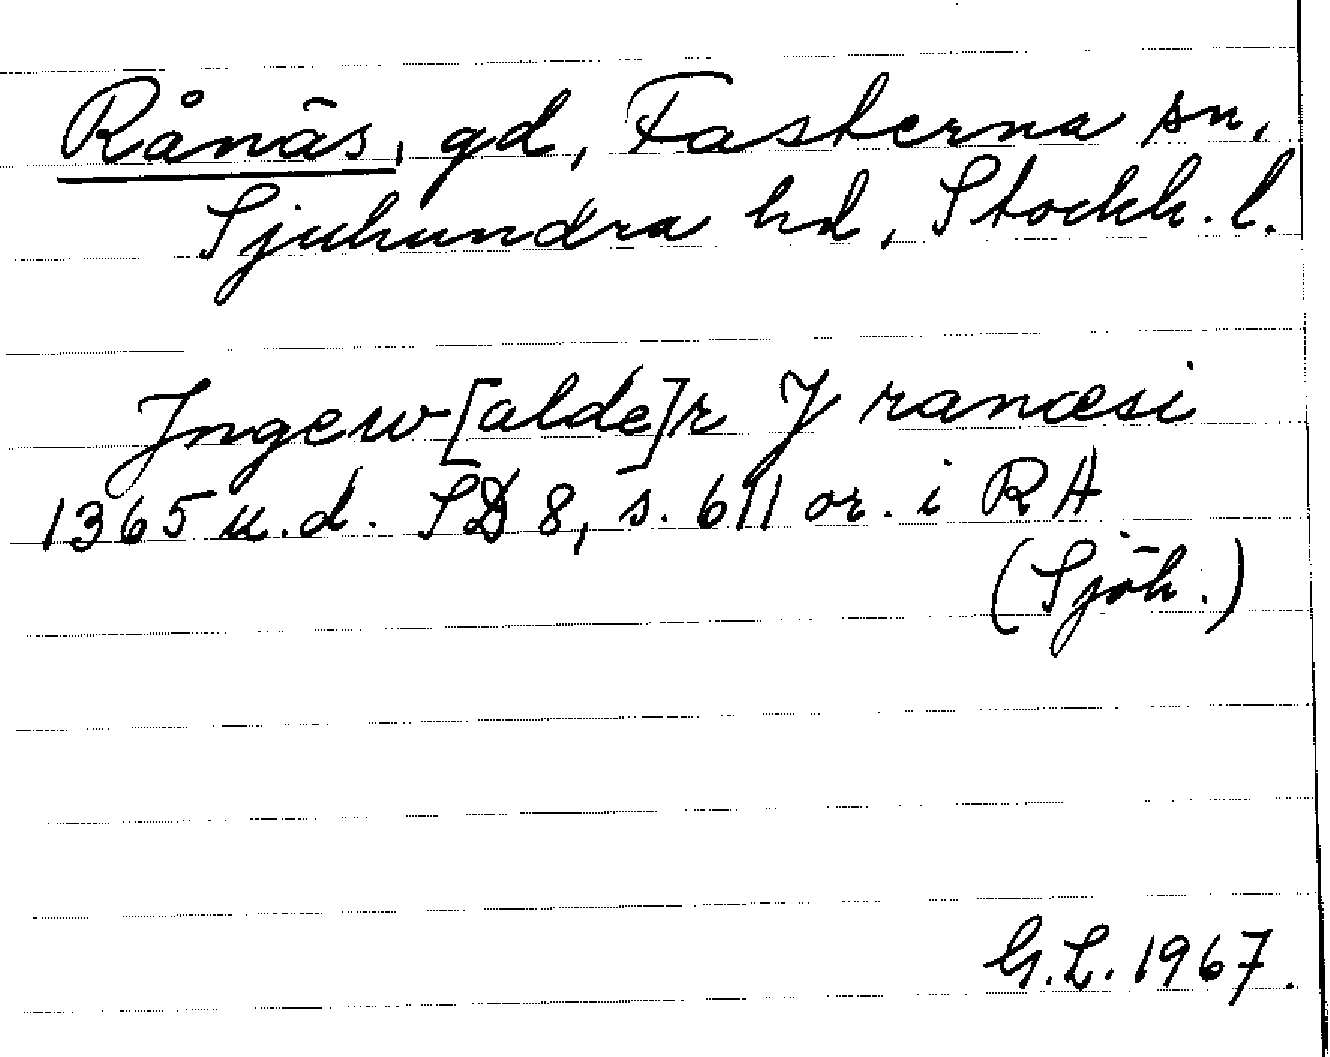 Rånäs, gd, Fasterna sn,
Sjuhundra hd, Stockh. l.
Jngew[alde]r J ranæsi
1365 u.d. SD 8, s. 611 or. i RA
(Sjöh.)
G.L. 1967.